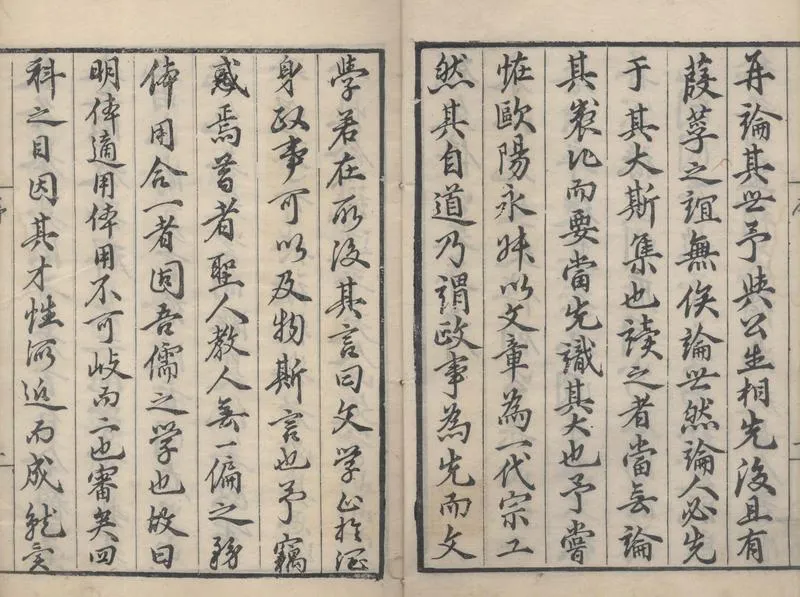 再論其世予與公生相先後且有
葭莩之誼無俟論世然論人必先
于其大斯集也讀之者當無論
其而要當先識其大也予嘗
怪歐陽永叔以文章為一代宗工
然其自道乃謂政事為先而文
學若在所後其言曰文學止於潤
身政事可以及物斯言也予竊
惑焉昔者聖人教人無一偏之務
体用合一者固吾儒之學也故曰
明体適用体用不可歧而二也審矣四
科之目因其才性所近而成就實